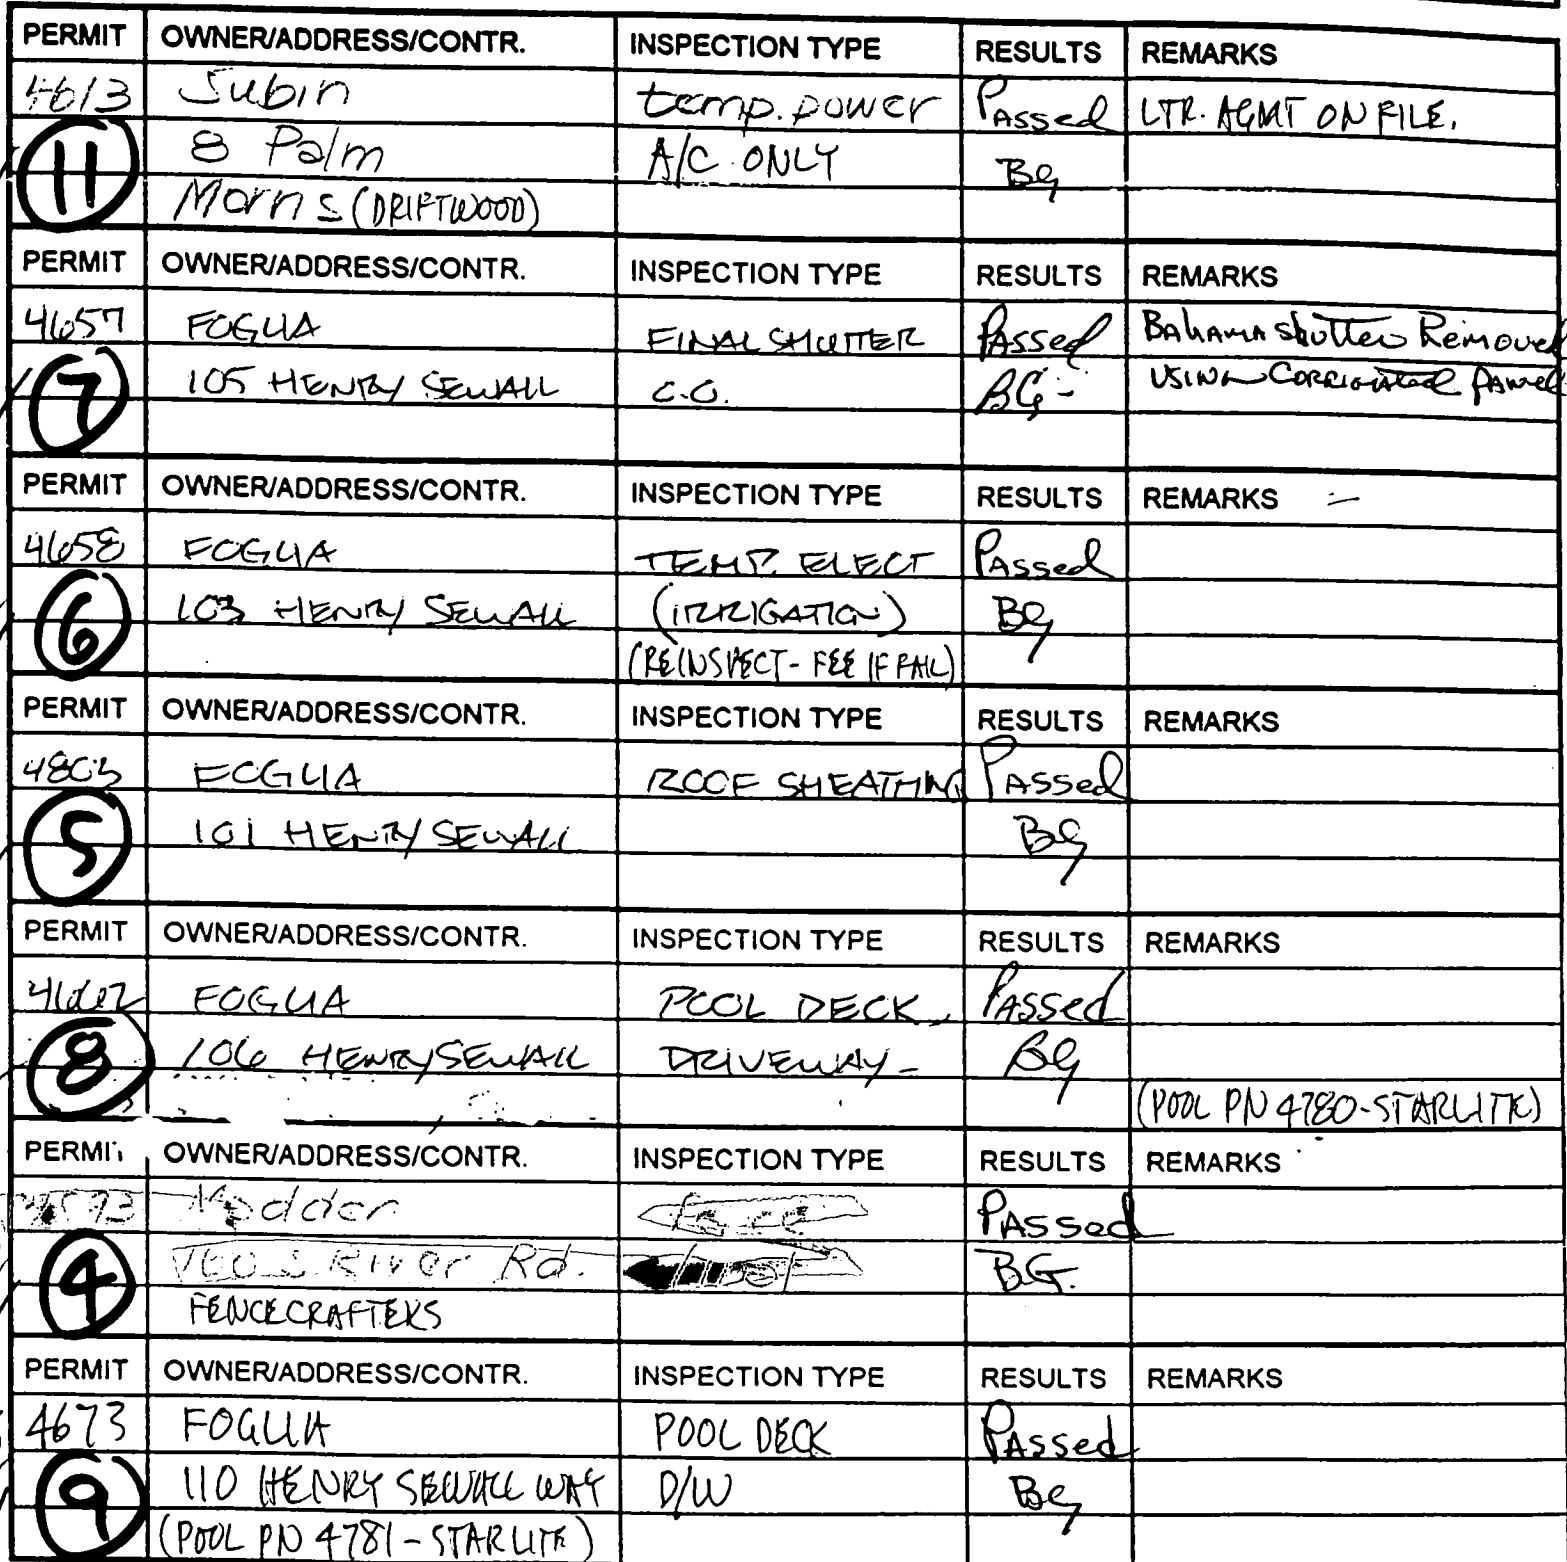 PERMIT OWNER/ADDRESS/CONTR. INSPECTION TYPE RESULTS REMARKS
4613 Jubin temp. power Passed LTR. AGMT ON FILE.
11 8 Palm A/C ONLY BG
Morris (DRIFTWOOD)
PERMIT OWNER/ADDRESS/CONTR. INSPECTION TYPE RESULTS REMARKS
4657 FOGLIA FINAL SHUTTER Passed BAHAMA Shutters Removed
7 105 HENRY SEWALL C.O. BG- USING Corrigated Panel
PERMIT OWNER/ADDRESS/CONTR. INSPECTION TYPE RESULTS REMARKS
4658 FOGLIA TEMP. ELECT Passed
6 103 HENRY SEWALL (IRRIGATION) BG
(REINSPECT - FEE IF FAIL)
PERMIT OWNER/ADDRESS/CONTR. INSPECTION TYPE RESULTS REMARKS
4803 FOGLIA ROOF SHEATHING Passed
5 101 HENRY SEWALL BG
PERMIT OWNER/ADDRESS/CONTR. INSPECTION TYPE RESULTS REMARKS
FOGLIA POOL DECK, Passed
8 106 HENRY SEWALL DRIVEWAY- BG
(POOL PN 4780-STARLITE)
PERMIT OWNER/ADDRESS/CONTR. INSPECTION TYPE RESULTS REMARKS
Passed
4 S River Rd. final B.G.
FENCECRAFTERS
PERMIT OWNER/ADDRESS/CONTR. INSPECTION TYPE RESULTS REMARKS
4673 FOGLIA POOL DECK Passed
9 110 HENRY SEWALL WAY D/W BG
(POOL PN 4781 - STARLITE)